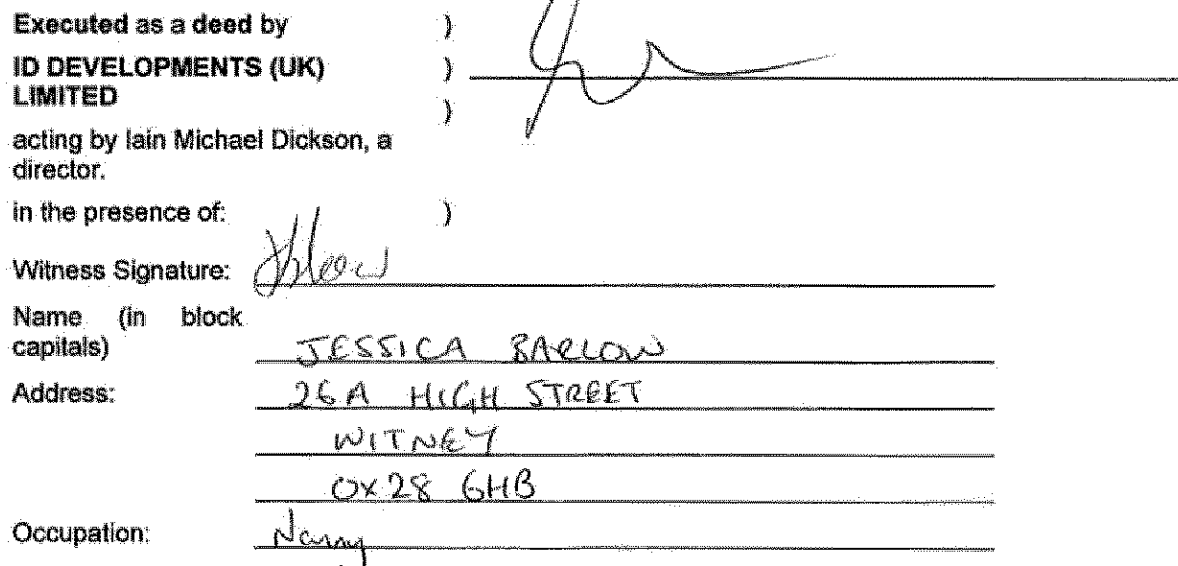 Executed as a deed by )
ID DEVELOPMENTS (UK) )
LIMITED )
acting by Iain Michael Dickson, a
director.
in the presence of: )
Witness Signature:
Name (in block
capitals) JESSICA BARLOW
Address: 26A HIGH STREET
WITNEY
OX28 6HB
Occupation: Nanny